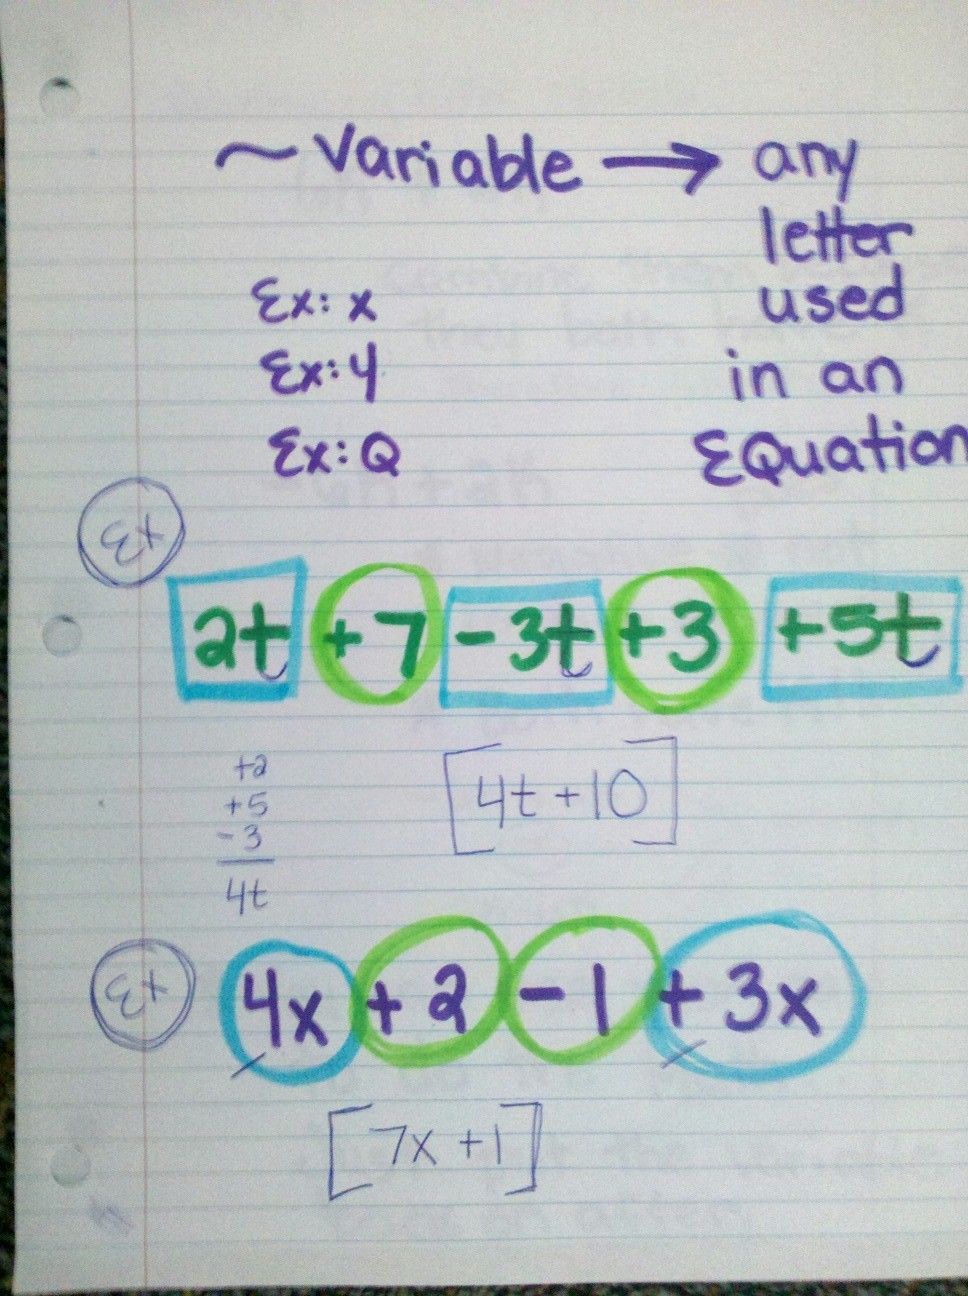 ~ Variable → any
letter
Ex: x used
Ex: y in an
Ex: Q EQuation
Ex
2t +7 -3t +3 +5t
+2
+5
-3
4t
[4t +10]
Ex
4x +2 -1 +3x
[7x +1]